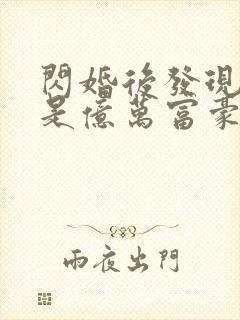 閃婚後發現
是億萬富豪
雨夜出門